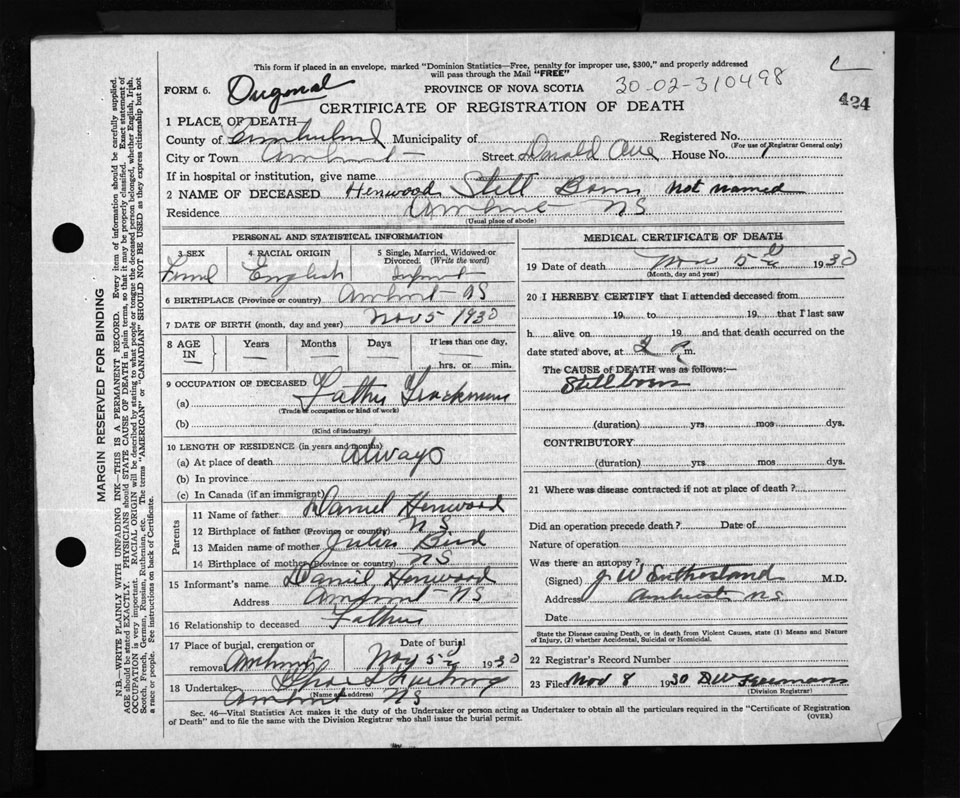 This form if placed in an envelope, marked "Dominion Statistics—Free, penalty for improper use, $300," and properly addressed
will pass through the Mail "FREE"
30-02-310498
424
FORM 6. PROVINCE OF NOVA SCOTIA
CERTIFICATE OF REGISTRATION OF DEATH
1 PLACE OF DEATH
County of Cumberland Municipality of Registered No.
(For use of Registrar General only)
City or Town Amherst Street Donald Ave House No.
If in hospital or institution, give name
2 NAME OF DECEASED Henwood Still Born not named
Residence Amherst NS
(Usual place of abode)
PERSONAL AND STATISTICAL INFORMATION
3 SEX 4 RACIAL ORIGIN 5 Single, Married, Widowed or
Divorced. (Write the word)
English Infant
6 BIRTHPLACE (Province or country) Amherst NS
7 DATE OF BIRTH (month, day and year) Nov 5 1930
8 AGE IN Years Months Days If less than one day,
hrs. or min.
9 OCCUPATION OF DECEASED
(a) Father
(Trade, occupation or kind of work)
(b)
(Kind of industry)
10 LENGTH OF RESIDENCE (in years and months)
(a) At place of death Always
(b) In province
(c) In Canada (if an immigrant)
Parents
11 Name of father Daniel Henwood
12 Birthplace of father (Province or country) NS
13 Maiden name of mother Bird
14 Birthplace of mother (Province or country) NS
15 Informant's name Daniel Henwood
Address Amherst NS
16 Relationship to deceased Father
17 Place of burial, cremation or Date of burial
removal Amherst Nov 5 1930
18 Undertaker
(Name and address)
Amherst NS
MEDICAL CERTIFICATE OF DEATH
19 Date of death Nov 5 1930
(Month, day and year)
20 I HEREBY CERTIFY that I attended deceased from
19 to 19 that I last saw
h alive on 19 and that death occurred on the
date stated above, at 2 P m.
The CAUSE of DEATH was as follows:—
Still born
(duration) yrs mos dys.
CONTRIBUTORY
(duration) yrs mos dys.
21 Where was disease contracted if not at place of death?
Did an operation precede death? Date of
Nature of operation
Was there an autopsy?
(Signed) J W Sutherland M.D.
Address Amherst NS
Date
State the Disease causing Death, or in death from Violent Causes, state (1) Means and Nature
of Injury, (2) whether Accidental, Suicidal or Homicidal.
22 Registrar's Record Number
23 Filed Nov 8 1930
(Division Registrar)
Sec. 46—Vital Statistics Act makes it the duty of the Undertaker or person acting as Undertaker to obtain all the particulars required in the "Certificate of Registration
of Death" and to file the same with the Division Registrar who shall issue the burial permit. (OVER)
MARGIN RESERVED FOR BINDING
N.B.—WRITE PLAINLY WITH UNFADING INK—THIS IS A PERMANENT RECORD. Every item of information should be carefully supplied.
AGE should be stated EXACTLY. PHYSICIANS should STATE CAUSE OF DEATH in plain terms, so that it may be properly classified. Exact statement of
OCCUPATION is very important. RACIAL ORIGIN will be described by stating to what people or tongue the deceased person belonged, whether English, Irish,
Scotch, French, German, Russian, Ruthenian, etc. The terms "AMERICAN" or "CANADIAN" SHOULD NOT BE USED as they express citizenship but not
a race or people. See instructions on back of Certificate.